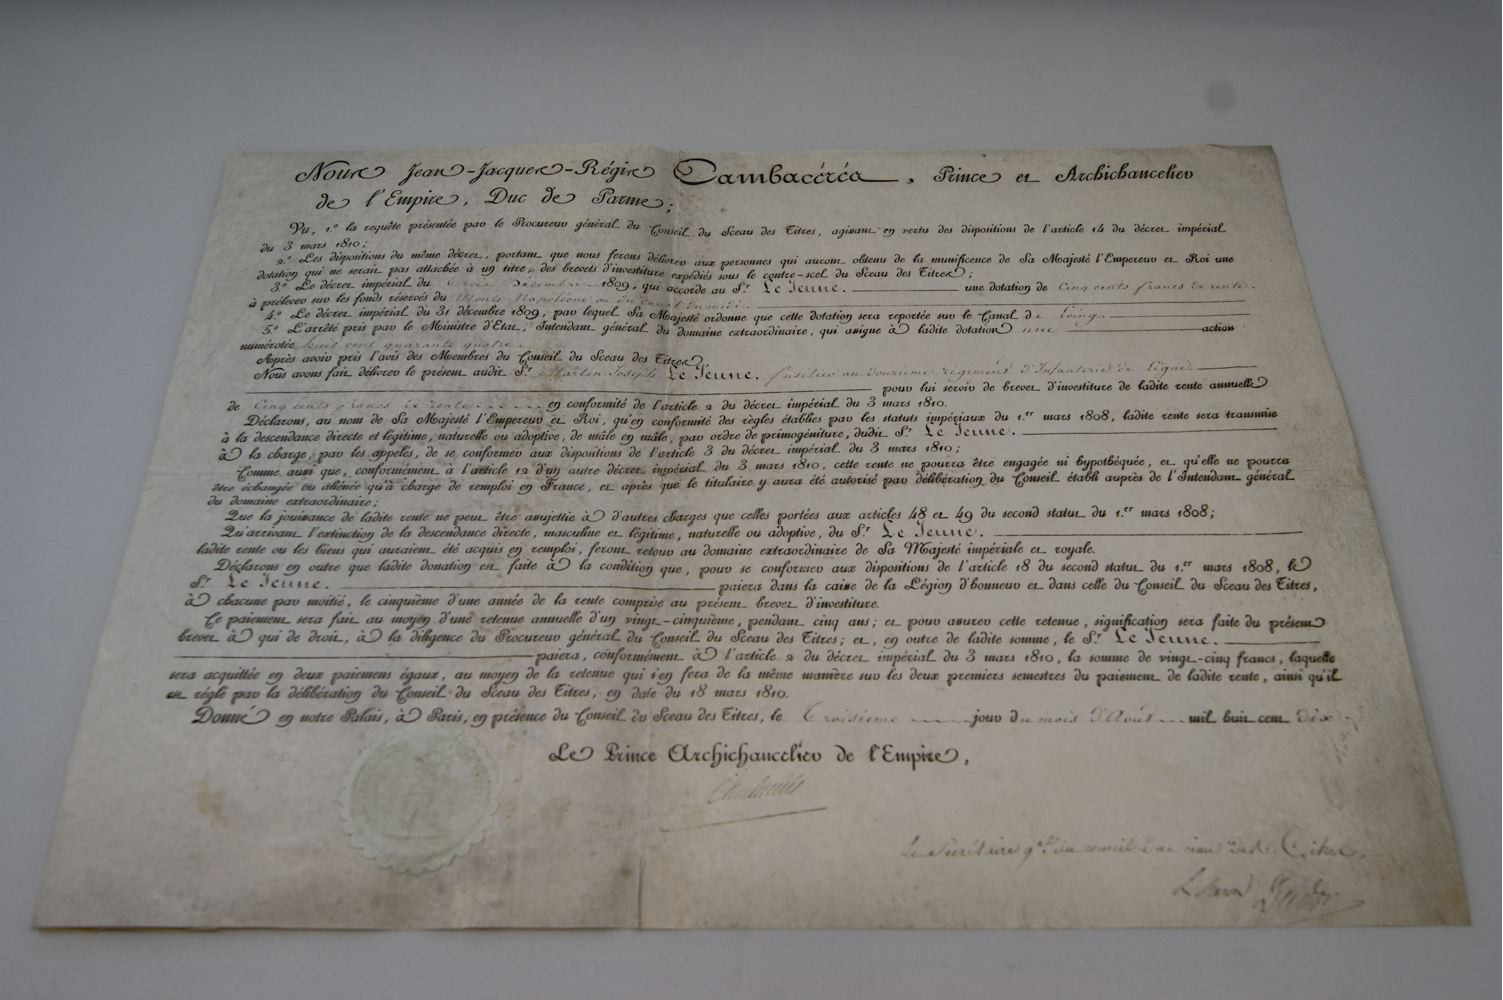 Nous Jean-Jacques-Régis Cambacérès, Prince et Archichancelier
de l'Empire, Duc de Parme;
Vu, 1.º la requête présentée par le Procureur général du Conseil du Sceau des Titres, agissant en vertu des dispositions de l'article 14 du décret impérial
du 3 mars 1810;
2.º Les dispositions du même décret, portant que nous ferons délivrer aux personnes qui auront obtenu de la munificence de Sa Majesté l'Empereur et Roi une
dotation qui ne serait pas attachée à un titre, des brevets d'investiture expédiés sous le contre-scel du Sceau des Titres;
3.º Le décret impérial du trois Décembre 1809, qui accorde au S.r Le Jeune. une dotation de Cinq cents francs de rente.
à prélever sur les fonds réservés du Monts Napoléone ou du Canal du midi.
4.º Le décret impérial du 31 décembre 1809, par lequel Sa Majesté ordonne que cette dotation sera reportée sur le Canal de Loing.
5.º L'arrêté pris par le Ministre d'Etat, Intendant général du domaine extraordinaire, qui assigne à ladite dotation une action
numérotée huit cent quarante quatre.
Après avoir pris l'avis des Membres du Conseil du Sceau des Titres,
Nous avons fait délivrer le présent audit S.r Martin Joseph Le Jeune. fusilier au douzième régiment d'Infanterie de Ligne.
pour lui servir de brevet d'investiture de ladite rente annuelle
de Cinq cents francs de rente en conformité de l'article 2 du décret impérial du 3 mars 1810.
Déclarons, au nom de Sa Majesté l'Empereur et Roi, qu'en conformité des règles établies par les statuts impériaux du 1.er mars 1808, ladite rente sera transmise
à la descendance directe et légitime, naturelle ou adoptive, de mâle en mâle, par ordre de primogéniture, dudit S.r Le Jeune.
à la charge, par les appelés, de se conformer aux dispositions de l'article 3 du décret impérial du 3 mars 1810;
Comme aussi que, conformément à l'article 12 d'un autre décret impérial du 3 mars 1810, cette rente ne pourra être engagée ni hypothéquée, et qu'elle ne pourra
être échangée ou aliénée qu'à charge de remploi en France, et après que le titulaire y aura été autorisé par délibération du Conseil établi auprès de l'Intendant général
du domaine extraordinaire;
Que la jouissance de ladite rente ne peut être assujettie à d'autres charges que celles portées aux articles 48 et 49 du second statut du 1.er mars 1808;
Qu'arrivant l'extinction de la descendance directe, masculine et légitime, naturelle ou adoptive, du S.r Le Jeune.
ladite rente ou les biens qui auraient été acquis en remploi, feront retour au domaine extraordinaire de Sa Majesté impériale et royale.
Déclarons en outre que ladite donation est faite à la condition que, pour se conformer aux dispositions de l'article 18 du second statut du 1.er mars 1808, le
S.r Le Jeune. paiera dans la caisse de la Légion d'honneur et dans celle du Conseil du Sceau des Titres,
à chacune par moitié, le cinquième d'une année de la rente comprise au présent brevet d'investiture.
Ce paiement sera fait au moyen d'une retenue annuelle d'un vingt-cinquième, pendant cinq ans; et pour assurer cette retenue, signification sera faite du présent
brevet à qui de droit, à la diligence du Procureur général du Conseil du Sceau des Titres; et, en outre de ladite somme, le S.r Le Jeune.
paiera, conformément à l'article 2 du décret impérial du 3 mars 1810, la somme de vingt-cinq francs, laquelle
sera acquittée en deux paiemens égaux, au moyen de la retenue qui s'en fera de la même manière sur les deux premiers semestres du paiement de ladite rente, ainsi qu'il
est réglé par la délibération du Conseil du Sceau des Titres, en date du 18 mars 1810.
Donné en notre Palais, à Paris, en présence du Conseil du Sceau des Titres, le Troisième jour du mois d'Aout mil huit cent dix.
Le Prince Archichancelier de l'Empire,
Cambacérès
Le Secrétaire g.al du conseil du sceau des Titres,